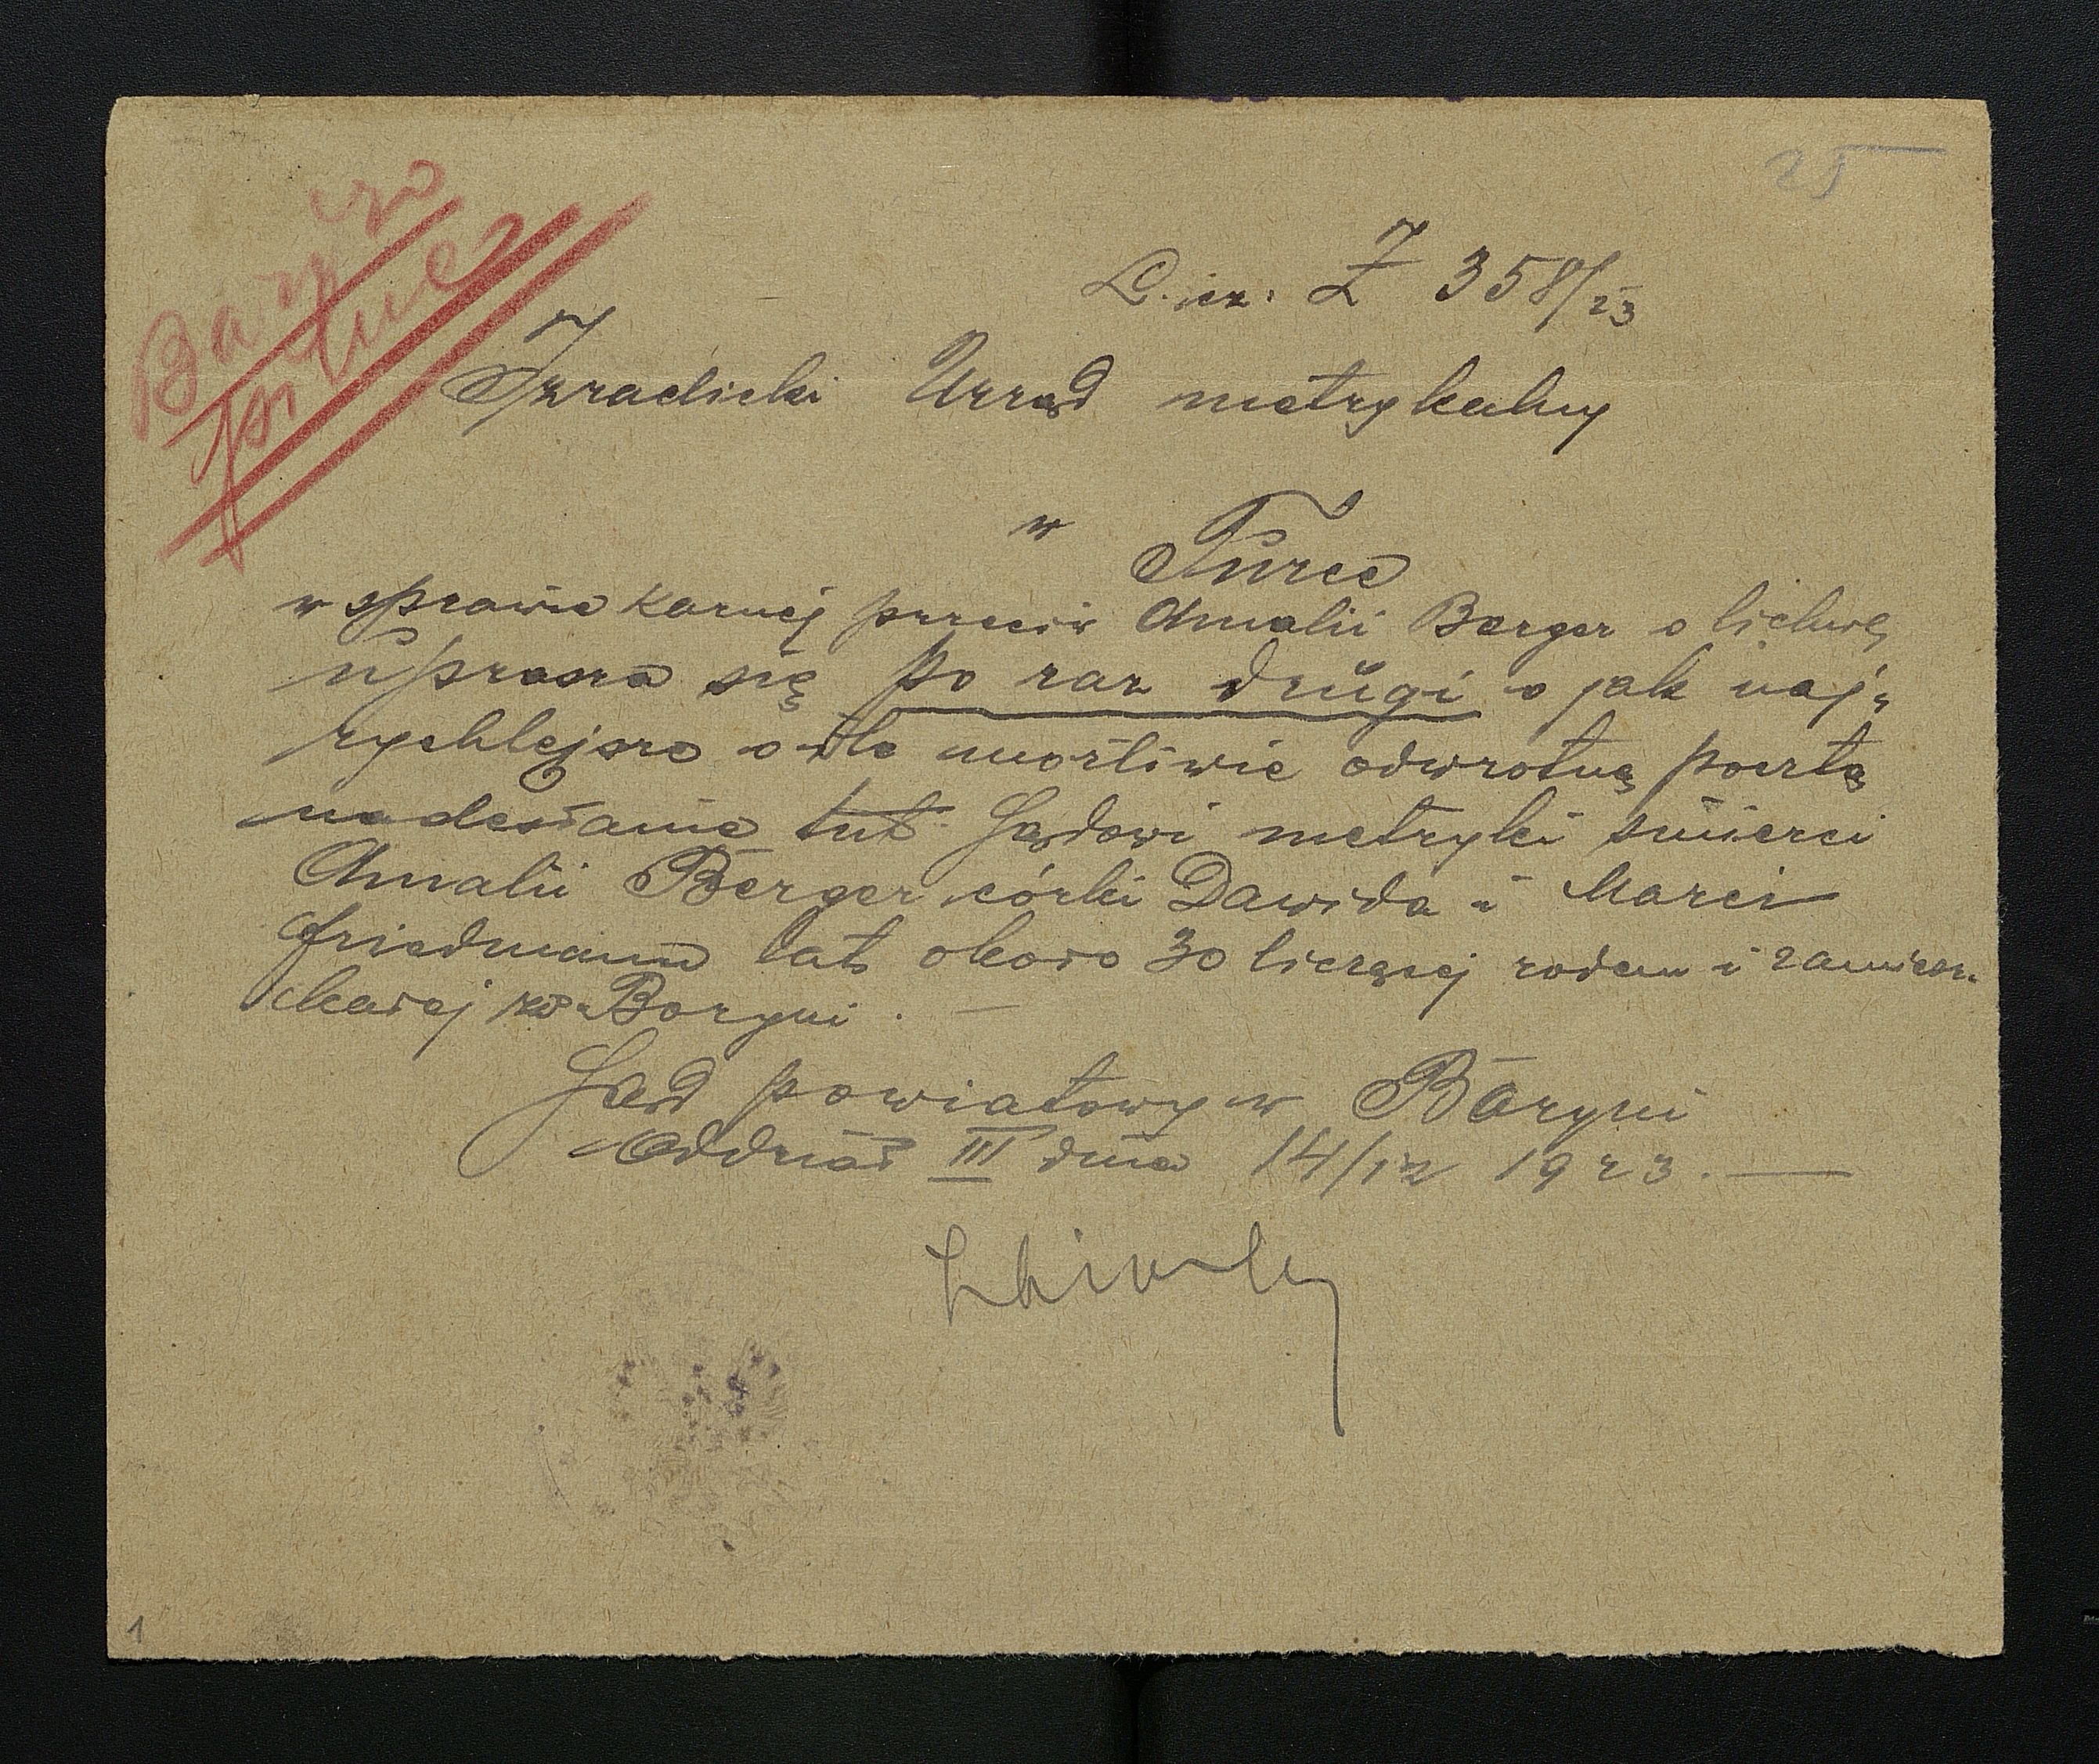 25
Bardzo
pilne
L. cz. Z 358/23
Izraelicki Urząd metrykalny
w Turce
w sprawie karnej przeciw Amalii Berger o lichwę,
uprasza się po raz drugi o jak naj-
rychlejsze o ile możliwie odwrotną pocztą
nadesłanie tut. Sądowi metryki śmierci
Amalii Berger córki Dawida i Marci
Friedmann lat około 30 liczącej rodem i zamiesz-
kałej w Boryni. —
Sąd powiatowy w Boryni
Oddział III dnia 14/12 1923. —
1